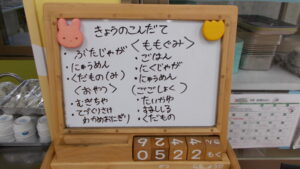 きょうのこんだて
ぶたじゃが
・にゅうめん
・くだもの(み)
<おやつ>
・むぎちゃ
・てづくりさけ
わかめおにぎり
<ももぐみ>
・ごはん
・にくじゃが
・にゅうめん
<ごごしょく>
・たいやき
・すましじる
・くだもの
0522